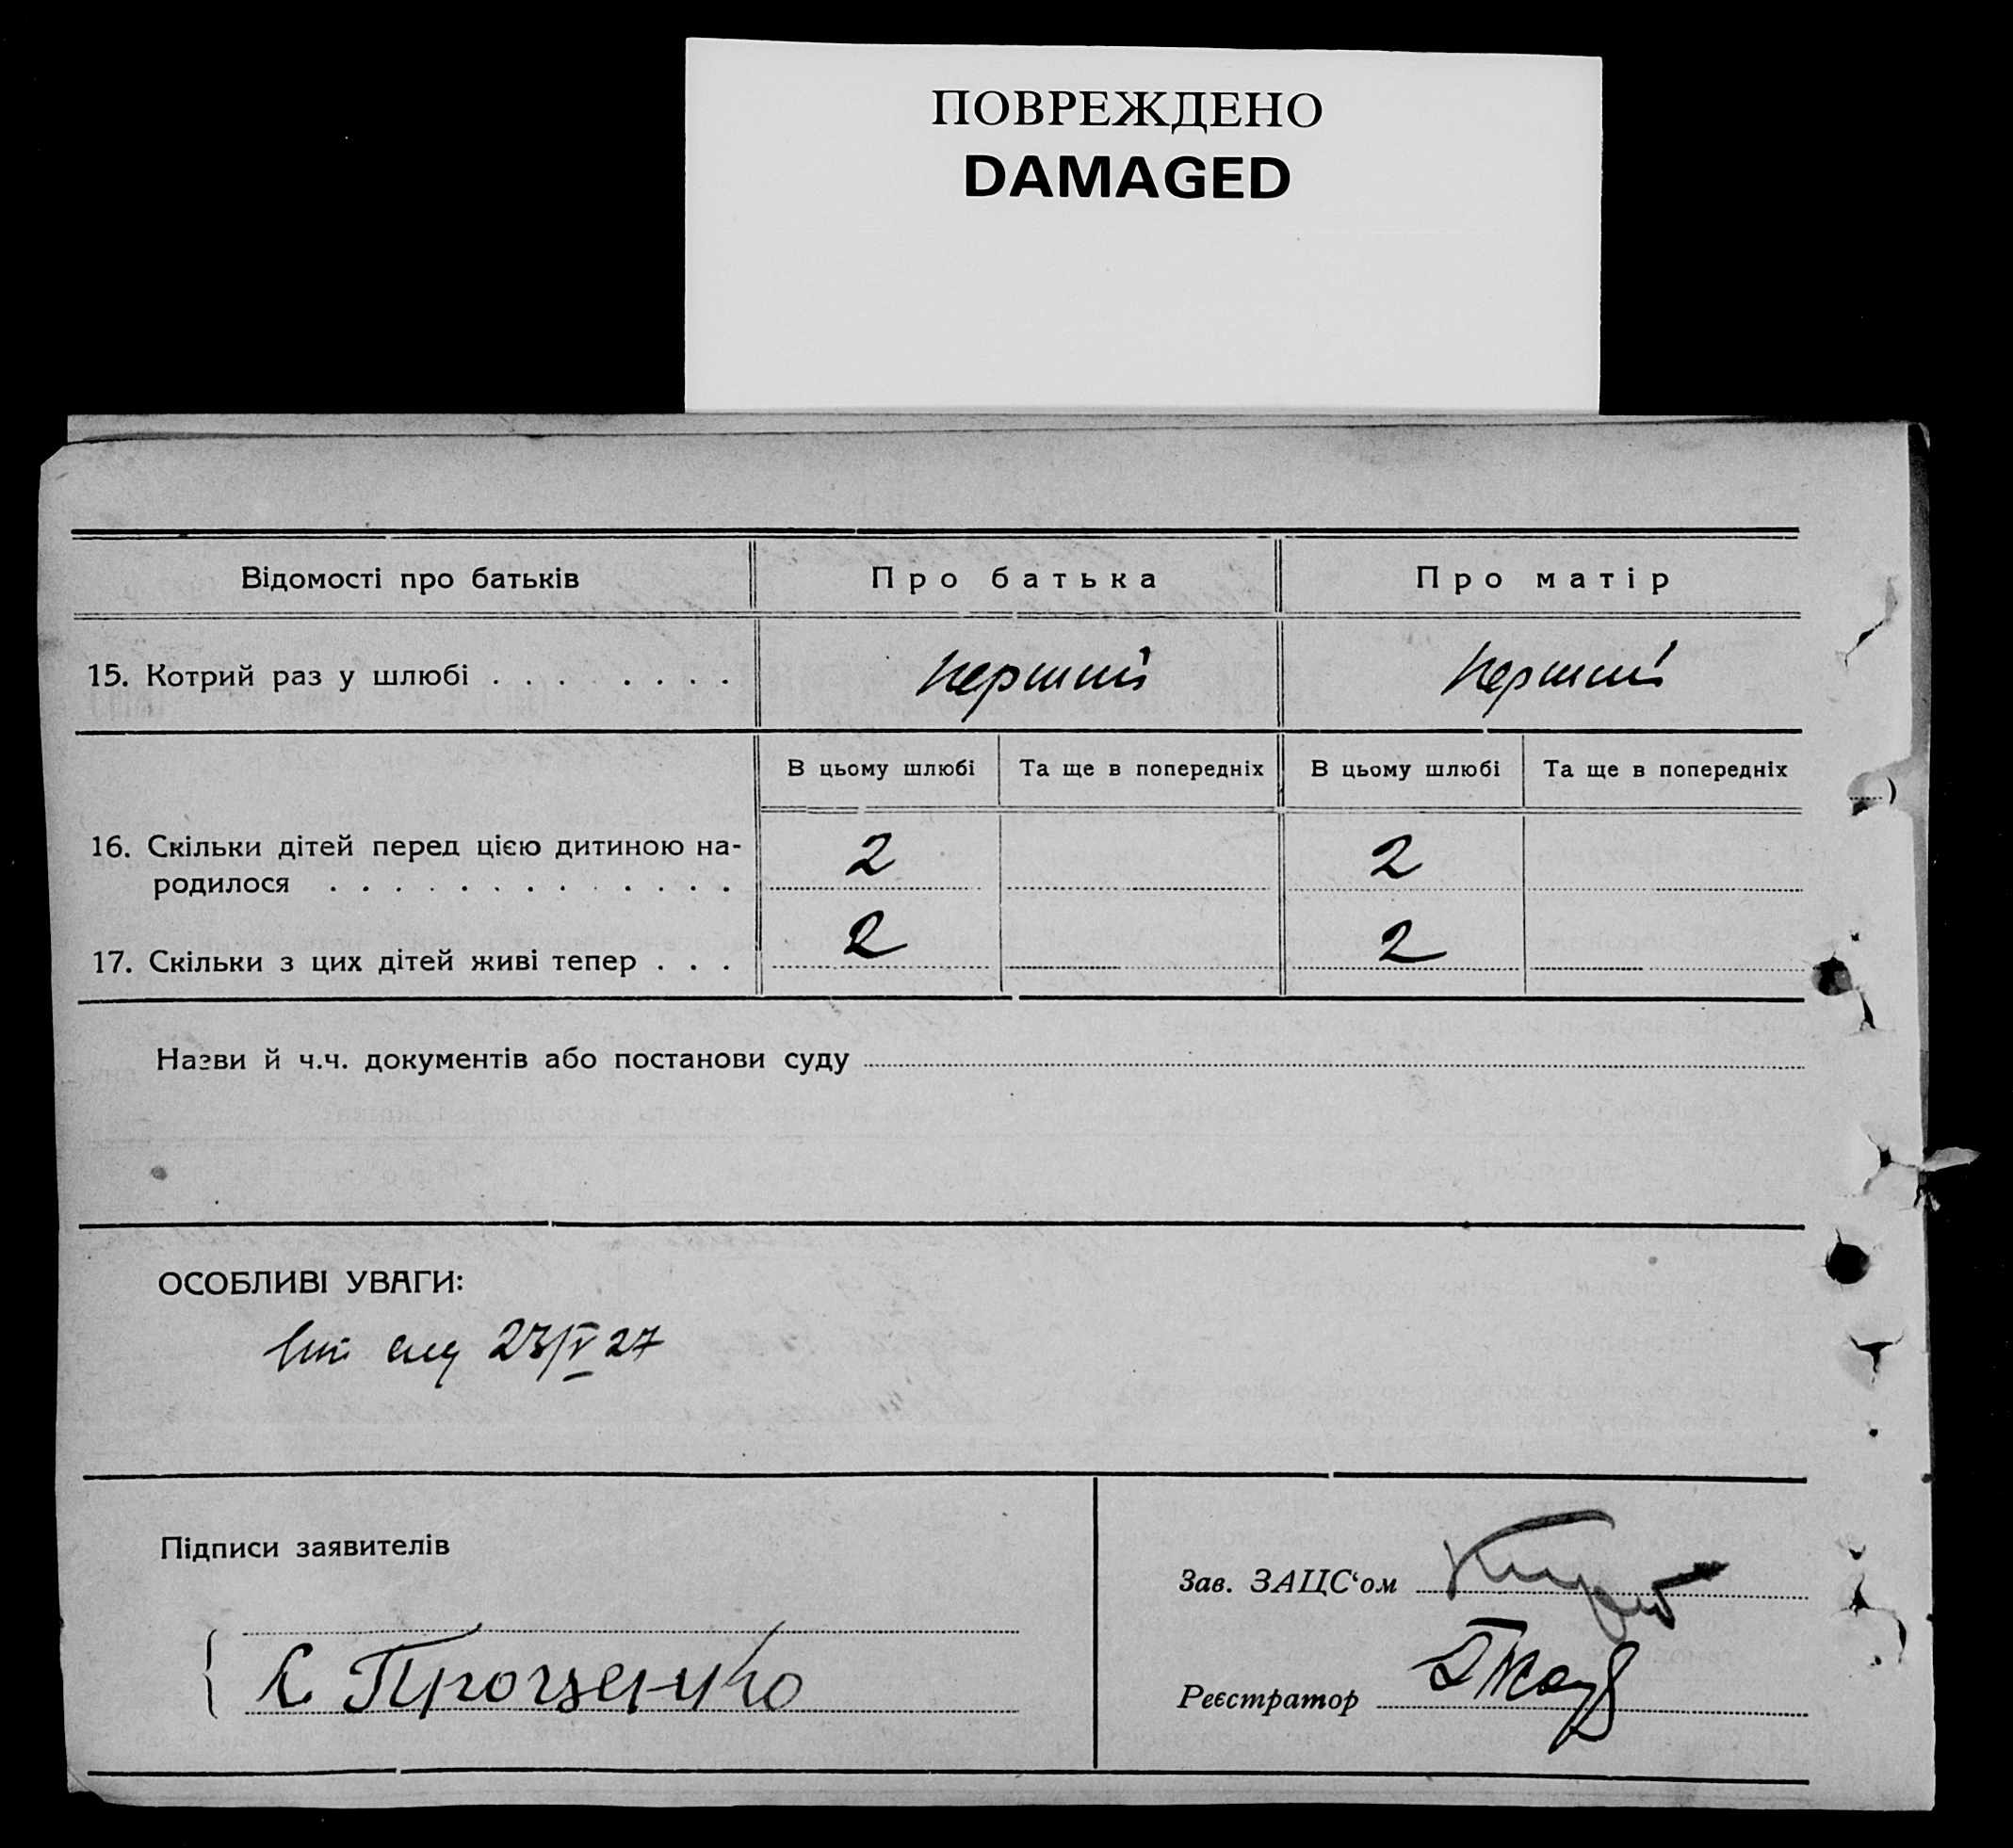 ПОВРЕЖДЕНО
DAMAGED
Відомості про батьків
Про батька
Про матір
15. Котрий раз у шлюбі . . . . . . . .
перший
перший
В цьому шлюбі
Та ще в попередніх
В цьому шлюбі
Та ще в попередніх
16. Скільки дітей перед цією дитиною на-
родилося . . . . . . . . . . . . .
2
2
17. Скільки з цих дітей живі тепер . . .
2
2
Назви й ч.ч. документів або постанови суду
ОСОБЛИВІ УВАГИ:
23/V 27
Підписи заявителів
Проценко
Зав. ЗАЦС‘ом
Реєстратор